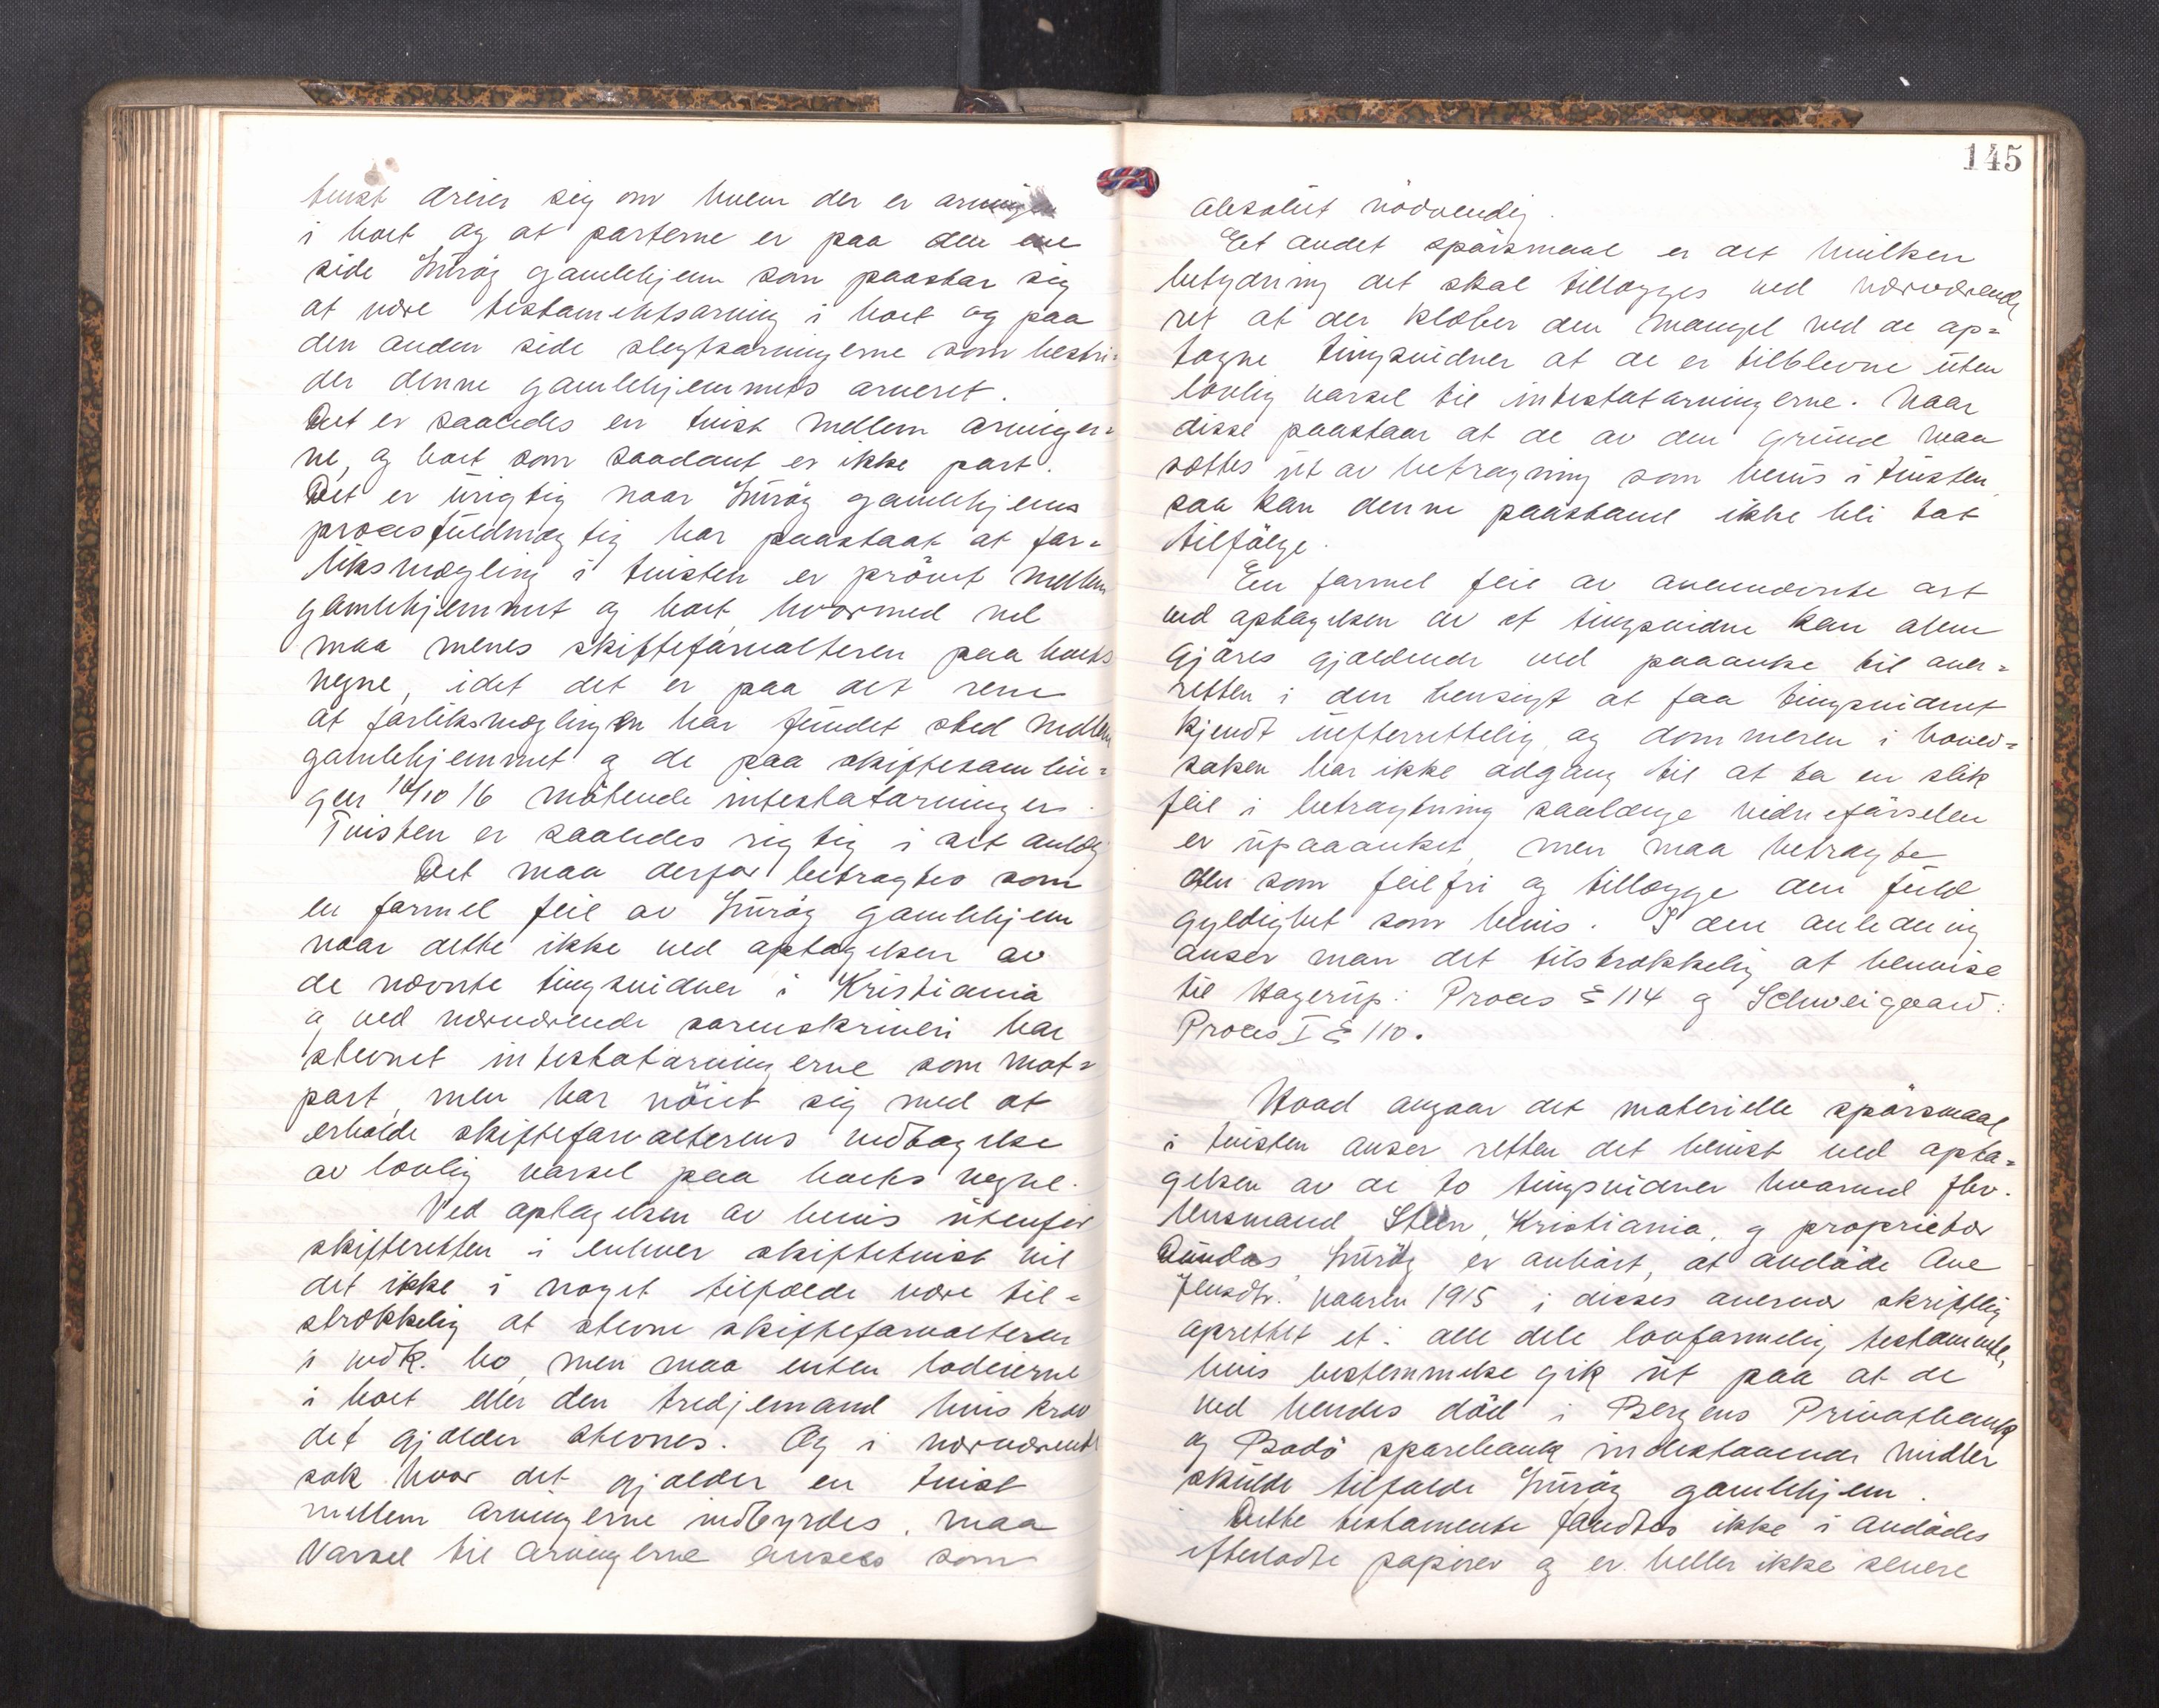 tvist dreier sig om hvem der er arvinger
i boet og at parterne er paa den ene
side Lurøy gamlehjem som paastar sig
at være testamentsarving i boet og paa
den anden side slegtsarvingerne som bestri-
der denne gamlehjemmets arveret.
Det er saaledes en tvist mellem arvinger-
ne, og boet som saadant er ikke part.
Det er urigtig naar Lurøy gamlehjems
procesfuldmægtig har paastaat at for-
liksmægling i tvisten er prøvet mellem
gamlehjemmet og boet, hvormed vel
maa menes skifteforvalteren paa boets
vegne, idet det er paa det rene
at forliksmæglingen har fundet sted mellem
gamlehjemmet og de paa skiftesamlin-
gen 10/10 16 møtende intestatarvinger.
Tvisten er saaledes rigtig i alt anlæg
Det maa derfor betragtes som
en formel feil av Lurøy gamlehjem
naar dette ikke ved optagelsen av
de nævnte tingsvidner i Kristiania
og ved nærværende sorenskriveri har
stevnet intestatarvingerne som mot-
part, men har nöiet sig med at
erholde skifteforvalterens vedtagelse
av lovlig varsel paa boets vegne.
Ved optagelsen av bevis utenfor
skifteretten i enhver skiftetvist vil
det ikke i noget tilfælde være til-
strækkelig at stevne skifteforvalteren
i vedk. bo, men maa enten lodeierne
i boet eller den tredjemand hvis krav
det gjælder stevnes. Og i nærværende
sak hvor det gjælder en tvist
mellem arvingerne indbyrdes, maa
varsel til arvingerne ansees som
145
absolut nödvendig.
Et andet spörsmaal er det hvilken
betydning det skal tillægges ved nærværende
ret at der klæber den mangel ved de op-
tagne tingsvidner at de er tilblevne uten
lovlig varsel til intestatarvingerne. Naar
disse paastaar at de av den grund maa
sættes ut av betragtning som bevis i tvisten,
saa kan denne paastand ikke bli tat
tilfölge.
En formel feil av ovennævnte art
ved optagelsen av et tingsvidne kan alene
gjöres gjældende ved paaanke til over-
retten i den hensigt at faa tingsvidnet
kjendt uefterrettelig, og dommeren i hoved-
saken har ikke adgang til at ta en slik
feil i betragtning saalænge vidneförselen
er upaaanket, men maa betragte
den som feilfri og tillægge den fuld
gyldighet som bevis. I den anledning
anser man det tilstrækkelig at henvise
til Hagerup: Proces § 114 og Schweigaard:
Proces I § 110.
Hvad angaar det materielle spörsmaal
i tvisten anser retten det bevist ved opta-
gelsen av de to tingsvidner hvorved fhv.
lensmand Steen, Kristiania, og proprietær
Dundas, Lurøy er anhört, at avdöde Ane
Jensdtr. vaaren 1915 i disses overvær skriftlig
oprettet et i alle dele lovformelig testamente,
hvis bestemmelse gik ut paa at de
ved hendes död i Bergens Privatbank
og Bodö sparebank indestaaende midler
skulde tilfalde Lurøy gamlehjem.
Dette testamente fandtes ikke i avdödes
efterladte papirer og er heller ikke senere